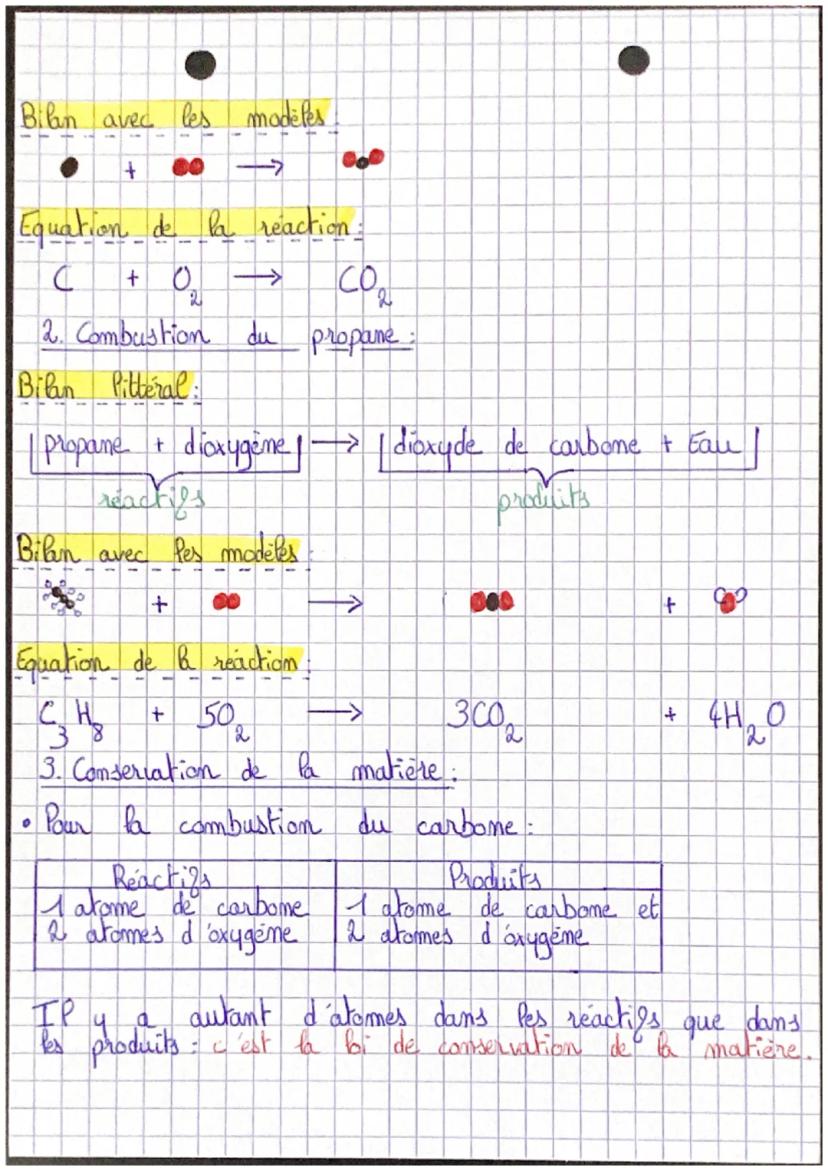 Bilan avec les modèles:
+ →
Equation de la réaction:
C + O₂ → CO₂
2. Combustion du propane:
Bilan littéral:
propane + dioxygène → dioxyde de carbone + Eau
réactifs produits
Bilan avec les modèles:
+ → +
Equation de la réaction:
C₃H₈ + 5O₂ → 3CO₂ + 4H₂O
3. Conservation de la matière:
• Pour la combustion du carbone:
Réactifs Produits
1 atome de carbone 1 atome de carbone et
2 atomes d'oxygène 2 atomes d'oxygène
Il y a autant d'atomes dans les réactifs que dans
les produits: c'est la loi de conservation de la matière.